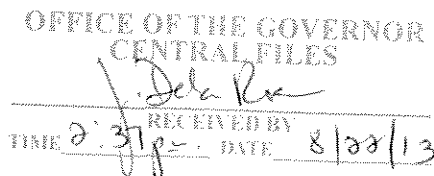 OFFICE OF THE GOVERNOR
CENTRAL FILES
RECEIVED BY
TIME 2:37 p DATE 8/22/13